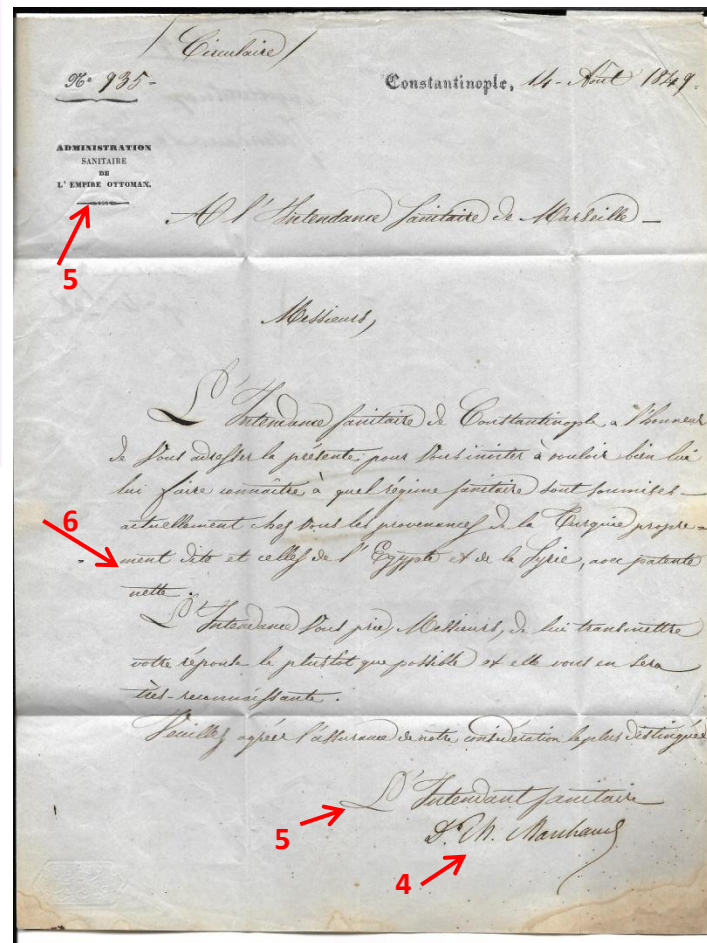 / Circulaire /
N° 935-
Constantinople, 14 - Août 1849.
ADMINISTRATION
SANITAIRE
DE
L' EMPIRE OTTOMAN.
5
A l'Intendance Sanitaire de Marseille -
Messieurs,
L'Intendance Sanitaire de Constantinople a l'honneur
de Vous adresser la présente, pour Vous inviter à vouloir bien lui
lui faire connaître à quel régime Sanitaire sont soumises -
6
actuellement chez Vous les provenances de la Turquie propre=
- ment dite et celles de l'Egypte et de la Syrie, avec patente
nette.
L'Intendance Vous prie, Messieurs, de lui transmettre
votre réponse le plustôt que possible et elle vous en sera
très-reconnaissante.
Veuillez agréer l'assurance de notre considération la plus distinguée
L'Intendant Sanitaire
5
Dr. Ch. Marchand
4